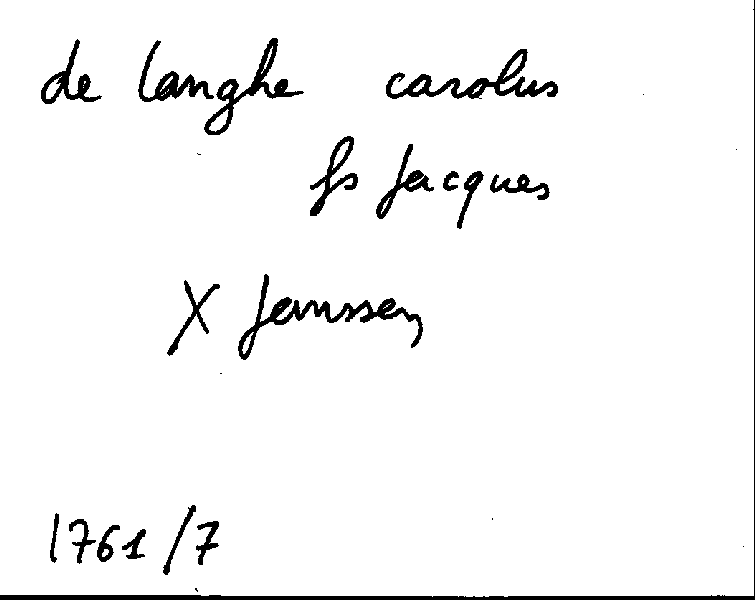 de langhe carolus
fs Jacques
X Janssen
1761/7